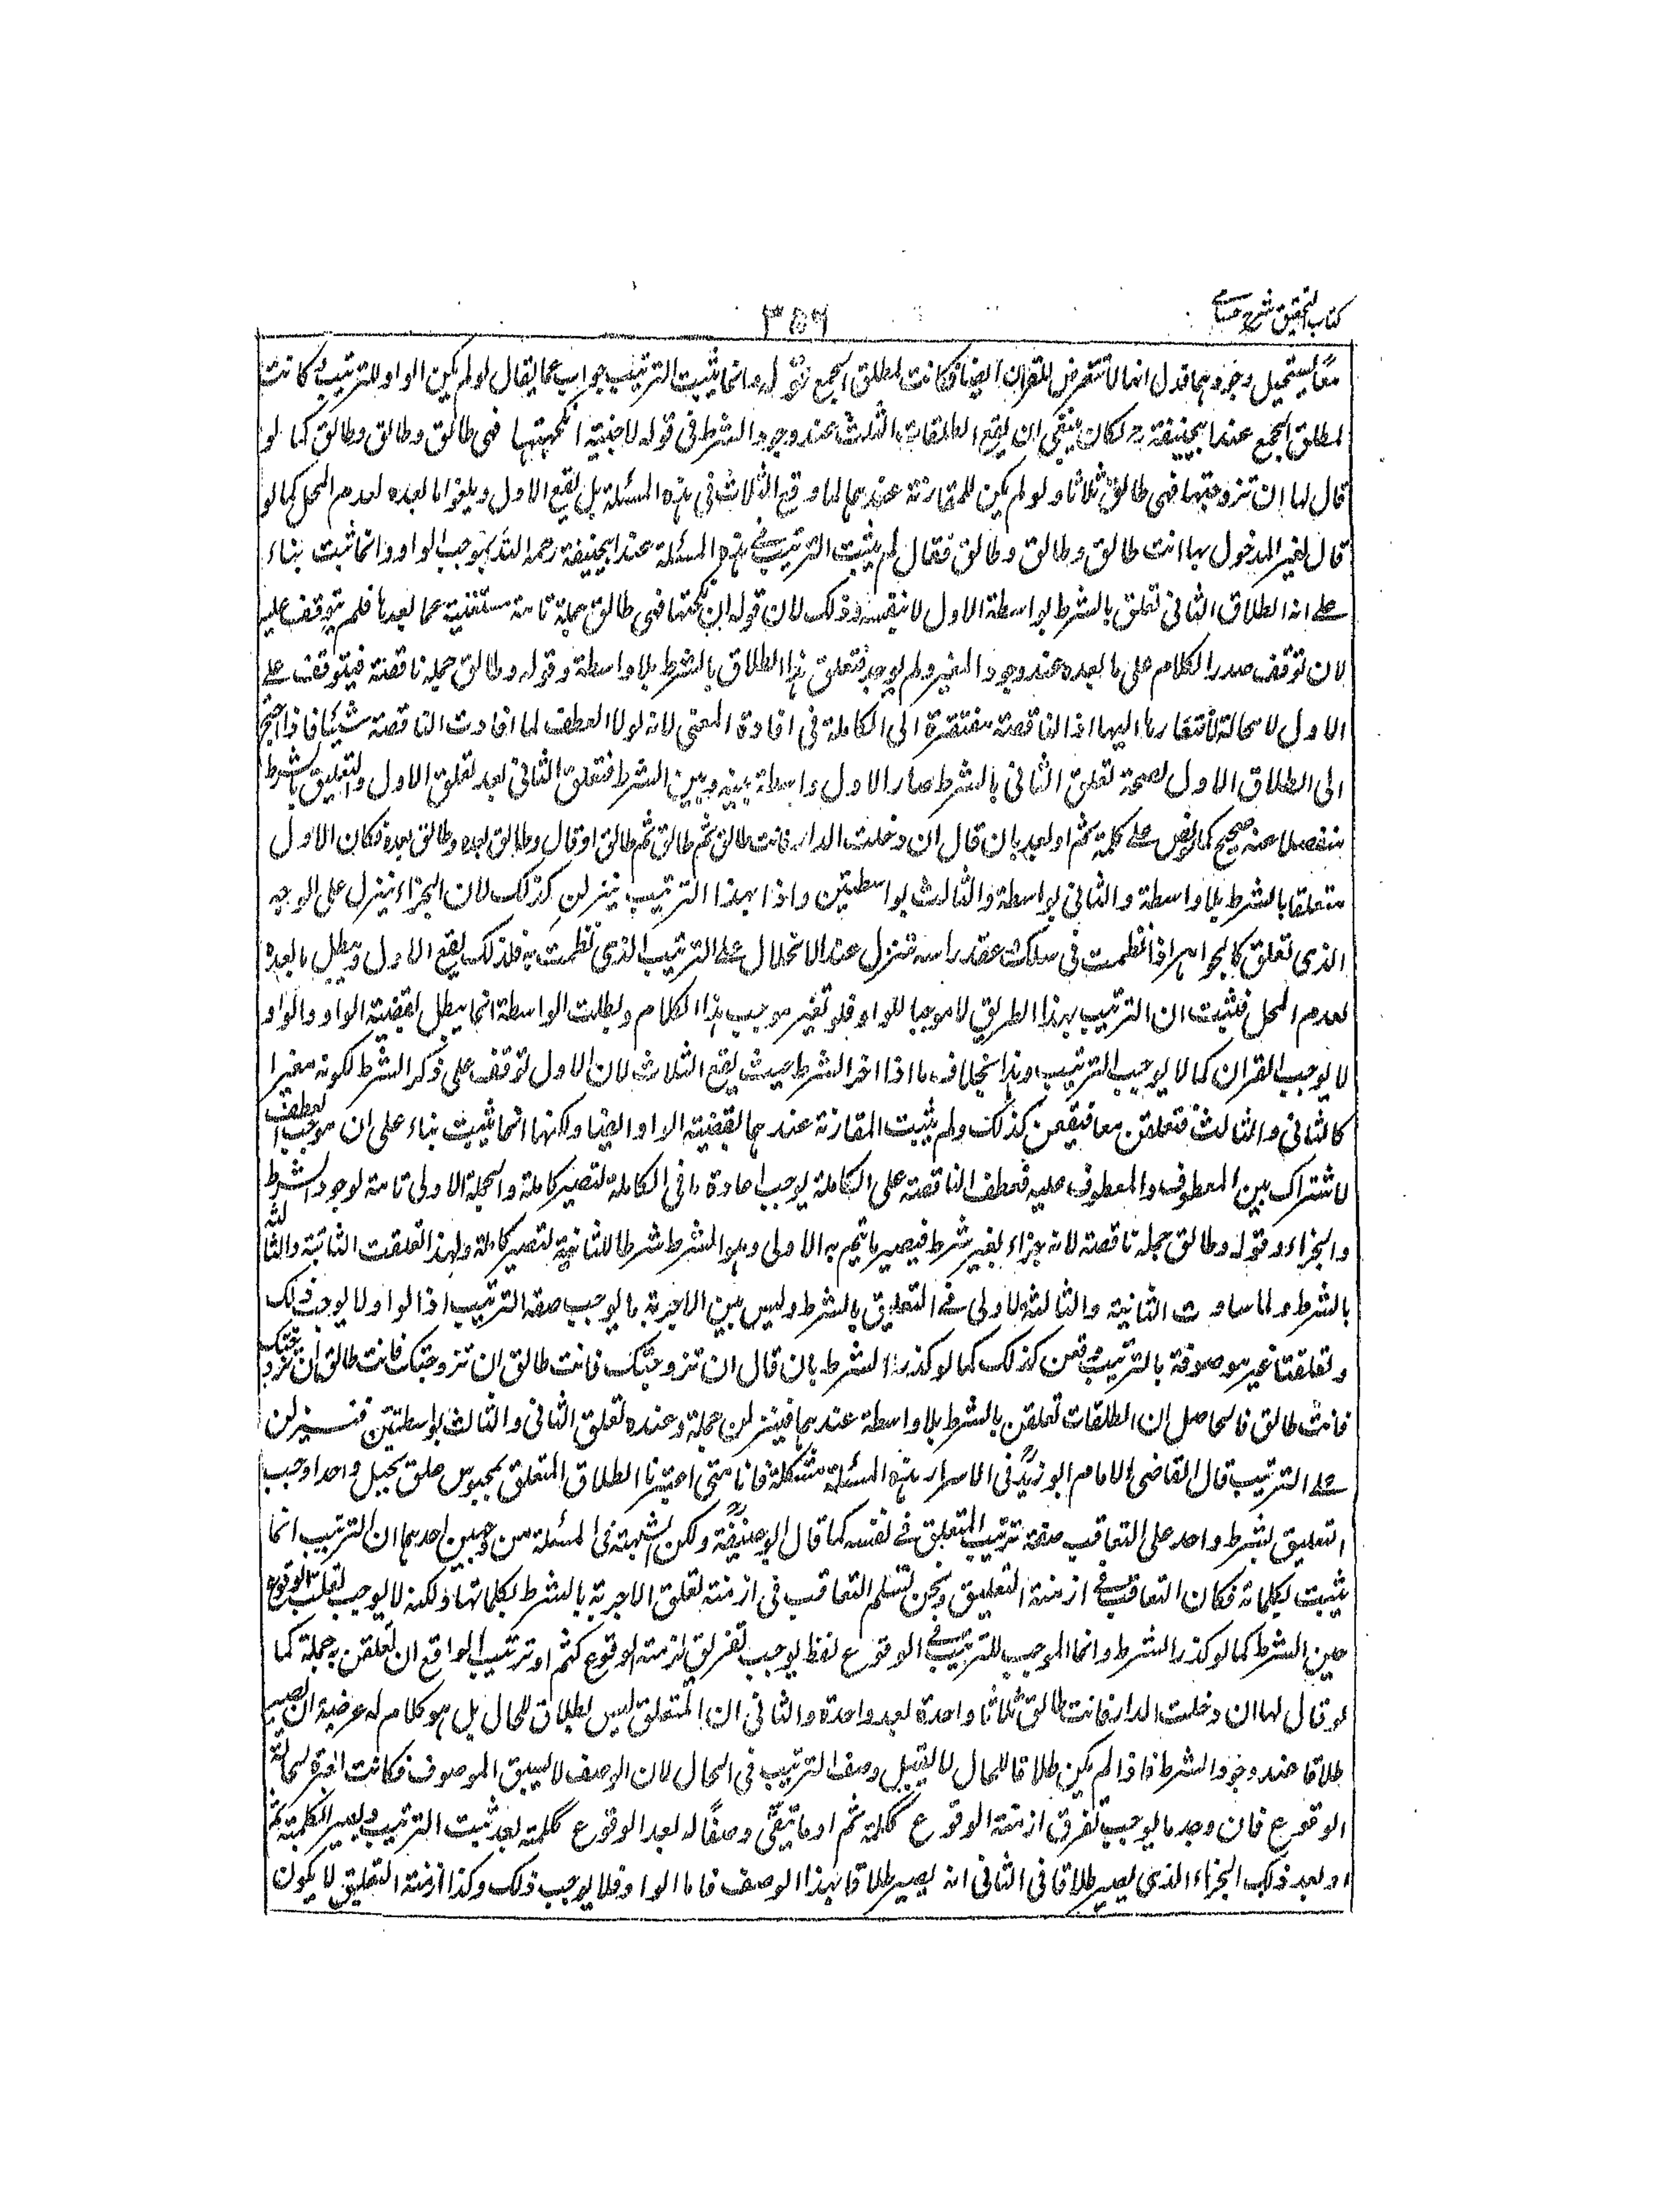 كتاب التحقيق شرح حسامى
٣٥٦
معًا يستحيل وجودهما قدل انها لا تتعرض للقران ايضا فكانت لمطلق الجمع قوله وانما يثبت الترتيب جواب عما يقال لو لم يكن الواو للترتيب وكانت
لمطلق الجمع عند ابيحنيفة رح لكان ينبغى ان يقع الطلقات الثلث عند وجود الشرط فى قوله لاجنبية ان نكحتها فهى طالق وطالق وطالق كما لو
قال لها ان تزوجتها فهى طالق ثلاثا ولو لم يكن للمقارنة عندهما لما وقع الثلاث فى هذه المسئلة بل يقع الاول ويلغو ما بعده لعدم المحل كما لو
قال لغير المدخول بها انت طالق وطالق وطالق فقال لم يثبت الترتيب فى هذه المسئلة عند ابيحنيفة رحمه الله بموجب الواو وانما ثبت بناء
على انه الطلاق الثانى تعلق بالشرط بواسطة الاول لا بنفسه وذلك لان قوله ان نكحتها فهى طالق جملة تامة مستغنية عما بعدها فلم يتوقف عليه
لان توقف صدر الكلام على ما بعده عند وجود المغير ولم يوجد فتعلق هذا الطلاق بالشرط بلا واسطة وقوله وطالق جملة ناقصة فيتوقف على
الاول لا محالة لافتقارها اليها اذ الناقصة مفتقرة الى الكاملة فى افادة المعنى لانه لولا العطف لما افادت الناقصة شيئا فاذا احتيج
الى الطلاق الاول لصحة تعلق الثانى بالشرط صار الاول واسطة بينه وبين الشرط فتعلق الثانى بعد تعلق الاول والتعليق بالشرط
منفصلا عنه صحيح كما لو نص على كلمة ثم او بعد بان قال ان دخلت الدار فانت طالق ثم طالق ثم طالق او قال وطالق بعده وطالق بعده فكان الاول
متعلقا بالشرط بلا واسطة والثانى بواسطة والثالث بواسطتين واذا بهذا الترتيب ينزلن كذلك لان الجزاء ينزل على الوجه
الذى تعلق كالجواهر اذا نظمت فى سلك وعقد راسه تنزل عند الانحلال على الترتيب الذى نظمت به فلذلك يقع الاول ويبطل ما بعده
لعدم المحل فثبت ان الترتيب بهذا الطريق لا موجبا للواو فلو تغير موجب هذا الكلام وبطلت الواسطة انما يبطل لقضية الواو والواو
لا يوجب القران كما لا يوجب الترتيب وهذا بخلاف ما اذا اخر الشرط حيث يقع الثلاث لان الاول توقف على ذكر الشرط لكونه مغيرا
كالثانى والثالث فتعلقن معا فيقعن كذلك ولم يثبت المقارنة عندهما لقضية الواو ايضا ولكنها انما ثبت بناء على ان موجب العطف
الاشتراك بين المعطوف والمعطوف عليه فعطف الناقصة على الكاملة يوجب اعادة ما فى الكاملة لتصير كاملة والجملة الاولى تامة لوجود الشرط
والجزاء وقوله وطالق جملة ناقصة لانه جزاء بغير شرط فيصير ما تم به الاولى وهو الشرط شرطا للثانية لتصير كاملة ولهذا تعلقت الثانية والثالثة
بالشرط ولما ساوت الثانية والثالثة الاولى فى التعليق بالشرط وليس بين الاجزية ما يوجب صفة الترتيب اذ الواو لا يوجب ذلك
وتعلقتا غير موصوفة بالترتيب وقعن كذلك كما لو كرر الشرط بان قال ان تزوجتك فانت طالق ان تزوجتك فانت طالق ان تزوجتك
فانت طالق فالحاصل ان الطلقات تعلقن بالشرط بلا واسطة عندهما فينزلن جملة وعنده تعلق الثانى والثالث بواسطتين فينزلن
على الترتيب قال القاضى الامام ابو زيد فى الاسرار هذه المسئلة مشكلة فانا متى اعتبرنا الطلاق المتعلق بمحبوس علق بحبل واحد اوجب
التعليق بشرط واحد على التعاقب صفة ترتيب المتعلق فى نفسه كما قال ابو حنيفة ولكن الشبهة فى المسئلة من وجهين احدهما ان الترتيب انما
يثبت لكلماته فكان التعاقب فى ازمنة التعليق ونحن نسلم التعاقب فى ازمنة تعلق الاجزية بالشرط بكلماتها ولكنه لا يوجب تعاقب الوقوع
حين الشرط كما لو كرر الشرط وانما الموجب للترتيب فى الوقوع لفظ يوجب تفريق ازمنة الوقوع كثم او ترتيب الواقع ان تعلقن به جملة كما
لو قال لها ان دخلت الدار فانت طالق ثلاثا واحدة بعد واحدة والثانى ان المتعلق ليس بطلاق للحال بل هو كلام له عرضية ان يصير
طلاقا عند وجود الشرط فاذا لم يكن طلاقا للحال لا يقبل وصف الترتيب فى الحال لان الوصف لا يسبق الموصوف فكانت العبرة لحالة
الوقوع فان وجد ما يوجب تفرق ازمنة الوقوع ككلمة ثم او ما يبقى وصفًا له بعد الوقوع ككلمة بعد ثبت الترتيب ويصير الكلمة ثم
او بعد ذلك الجزاء الذى يصير طلاقا فى الثانى انه يصير طلاقا بهذا الوصف فاما الواو فلا يوجب ذلك وكذا ازمنة التعليق لا يكون